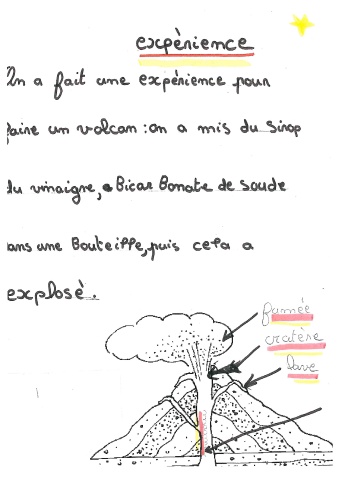 expèrience
On a fait une expérience pour
faire un volcan : on a mis du sirop
du vinaigre, Bicar Bonate de soude
ans une Bouteille, puis cela a
explosé.
fumée
cratère
lave